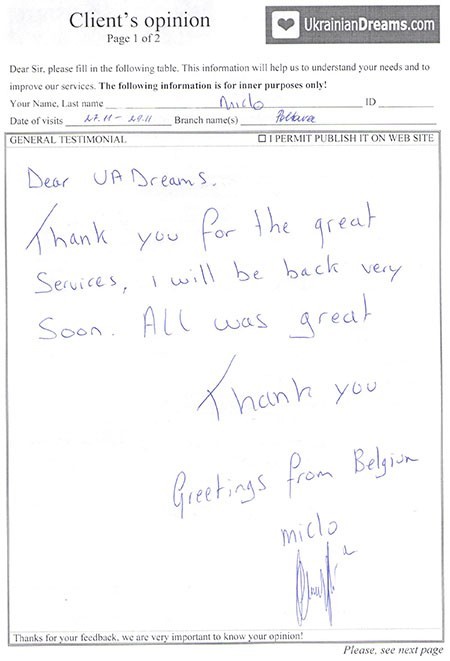 Client's opinion
Page 1 of 2
UkrainianDreams.com
Dear Sir, please fill in the following table. This information will help us to understand your needs and to
improve our services. The following information is for inner purposes only!
Your Name, Last name Miclo ID
Date of visits 27.11 - 29.11 Branch name(s) Poltava
GENERAL TESTIMONIAL ☐ I PERMIT PUBLISH IT ON WEB SITE
Dear UA Dreams.
Thank you for the great
Services, I will be back very
Soon. All was great
Thank you
Greetings from Belgium
miclo
Thanks for your feedback, we are very important to know your opinion!
Please, see next page